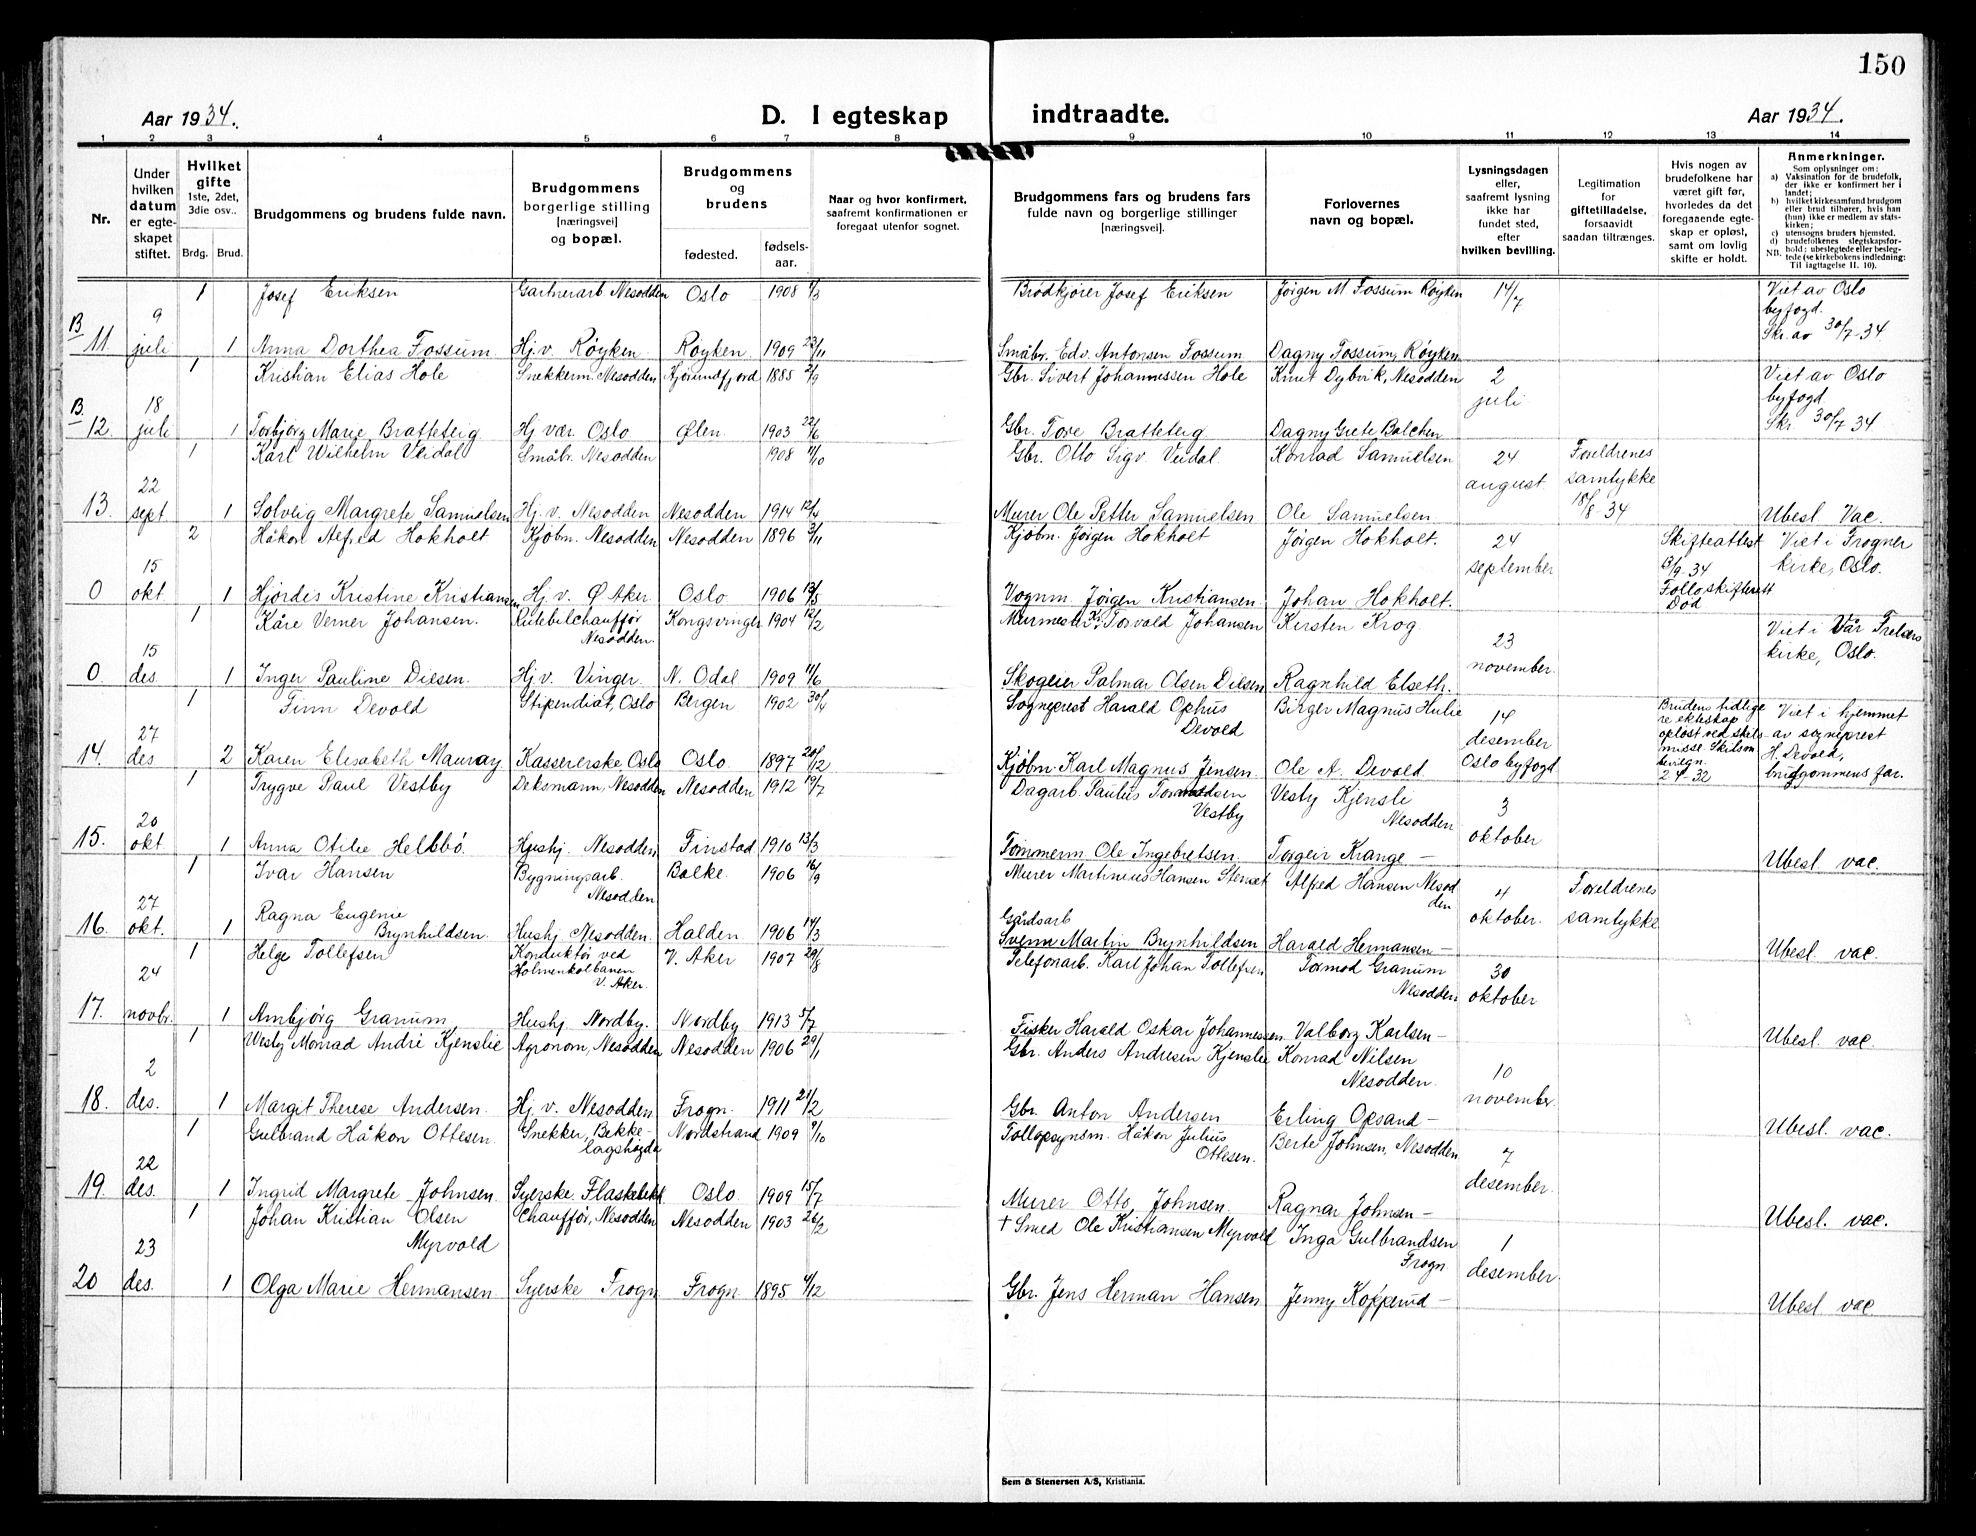 150
Aar 1934.
D. I egteskap indtraadte.
Aar 1934.
1 2 3 4 5 6 7 8 9 10 11 12 13 14
Nr.
Under hvilken datum er egteskapet stiftet.
Hvilket gifte
1ste, 2det, 3die osv..
Brdg. Brud.
Brudgommens og brudens fulde navn.
Brudgommens borgerlige stilling [næringsvei] og bopæl.
Brudgommens og brudens
fødested. fødsels-aar.
Naar og hvor konfirmert, saafremt konfirmationen er foregaat utenfor sognet.
Brudgommens fars og brudens fars fulde navn og borgerlige stillinger [næringsvei].
Forlovernes navn og bopæl.
Lysningsdagen eller, saafremt lysning ikke har fundet sted, efter hvilken bevilling.
Legitimation for giftetilladelse, forsaavidt saadan tiltrænges.
Hvis nogen av brudefolkene har været gift før, hvorledes da det foregaaende egteskap er opløst, samt om lovlig skifte er holdt.
Anmerkninger.
Som oplysninger om:
a) Vaksination for de brudefolk, der ikke er konfirmert her i landet;
b) hvilket kirkesamfund brudgom eller brud tilhører, hvis han (hun) ikke er medlem av statskirken;
c) utensogns bruders hjemsted.
d) brudefolkenes slegtskapsforhold: ubeslegtede eller beslegtede (se kirkebokens indledning: Til iagttagelse II. 10).
NB.
1 Josef Eriksen Gartnerarb Nesodden Oslo 1908 Brödkjører Josef Eriksen Jörgen M Fossum Röyken 14/7 Viet av Oslo byfogd.
B 11. 9 juli 1 Anna Dorthea Fossum Hj. v. Röyken Röyken 1909 23/11 Småbr. Edv. Antonsen Fossum Dagny Fossum, Röyken Skr. av 30/7-34
1 Kristian Elias Hole Snekkerm Nesodden Hjörundfjord 1885 2/9 Gbr. Sivert Johannessen Hole Knut Dybvik, Nesodden 2 juli Viet av Oslo byfogd
B. 12. 18 juli 1 Torbjörg Marie Bratteteig Hj vær Oslo Ølen 1903 22/6 Gbr. Tore Bratteteig Dagny Grete Balchen Skr. 30/7 34
1 Karl Wilhelm Veidal Småbr. Nesodden 1908 11/10 Gbr. Otto Sigv. Veidal. Konrad Samuelsen 24 august Foreldrenes samtykke
13. 22 sept 1 Solveig Margrete Samuelsen Hj. v. Nesodden Nesodden 1914 12/4 Murer Ole Petter Samuelsen Ole Samuelsen 18/8-34 Ubesl Vac.
2 Håkon Alfred Hokholt Kjöbm. Nesodden Nesodden 1896 3/11 Kjöbm. Jörgen Hokholt Jörgen Hokholt. 24 september Skifteattest 5/9 34 Viet i Frogner kirke, Oslo.
0 15 okt 1 Hjördis Kristine Kristiansen Hj. v. Ø. Aker Oslo 1906 13/5 Vognm. Jörgen Kristiansen Johan Hokholt. Follo skifterett Död
1 Kåre Verner Johansen. Rutebilchaufför Nesodden. Kongsvinger 1904 12/2 Murmester Torvald Johansen Kirsten Krog 23 november. Viet i Vår Frelsers kirke, Oslo.
0. 15 des 1 Inger Pauline Diesen. Hj. v. Vinger. N. Odal 1909 11/6 Skogeier Palmar Olsen Diesen Ragnhild Elseth.
1 Finn Devold Stipendiat, Oslo Bergen 1902 30/4 Sogneprest Harald Ophus Devold Birger Magnus Hulie 14 desember Brudens tidligere ekteskap oplöst ved skilsmisse. Skilsm bevilgn. 24-32 Viet i hjemmet av sogneprest H. Devold, brudgommens far.
14. 27 des 2 Karen Elisabeth Mauray Kassererske Oslo Oslo. 1897 20/12 Kjöbm. Karl Magnus Jensen Ole A. Devold Oslo byfogd
1 Trygve Paul Vestby Deksmann, Nesodden Nesodden 1912 19/7 Dagarb. Paulus Vestby Vesby Kjensli Nesodden 3 oktober
15. 20 okt 1 Anna Otilie Helbbö. Hushj. Nesodden Finstad 1910 13/3 Tömmerm Ole Ingebretsen Torgeir Krange — Ubesl vac.
1 Ivar Hansen Bygningsarb. Nesodden Balke. 1906 16/9 Murer Martinius Hansen Stenset Alfred Hansen Nesodden 4 oktober. Foreldrenes samtykke
16. 27 okt. 1 Ragna Eugenie Brynhildsen. Hushj Nesodden. Halden 1906 14/3 Gårdsarb Svenn Martin Brynhildsen Harald Hermansen — Ubesl. vac.
1 Helge Tollefsen Konduktör ved Holmenkolbanen V. Aker. V. Aker 1907 29/8 Telefonarb. Karl Johan Tollefsen Tormod Granum Nesodden 30 oktober
17. 24 novbr. 1 Arnbjörg Granum Hushj Nordby. Nordby 1913 5/7 Fisker Harald Oskar Johannessen Valborg Karlsen — Ubesl. vac.
1 Wesby Monrad Andre Kjenslie Agronom, Nesodden Nesodden 1906 29/1 Gbr. Anders Andresen Kjenslie Konrad Nilsen Nesodden. 10 november.
18. 2 des. 1 Margit Therese Andersen. Hj. v. Nesodden Frogn. 1911 21/2 Gbr. Anton Andersen Erling Opsand — Ubesl. vac.
1 Gulbrand Håkon Ottesen. Snekker, Bekkelagshögda Nordstrand 1909 9/10 Tollopsynsm. Håkon Julius Ottesen. Berte Johnsen, Nesodden 7 desember.
19. 22 des. 1 Ingrid Margrete Johnsen. Syerske. Oslo. 1909 15/7 Murer Otto Johnsen. Ragnar Johnsen — Ubesl. vac.
1 Johan Kristian Olsen Myrvold Chaufför, Nesodden Nesodden 1903 26/2 † Smed Ole Kristiansen Myrvold Inga Gulbrandsen Frogn 1 desember.
20 23 des. 1 Olga Marie Hermansen Syerske Frogn Frogn 1895 4/12 Gbr. Jens Herman Hansen Jenny Kopperud — Ubesl. vac.
Sem & Stenersen A/S, Kristiania.